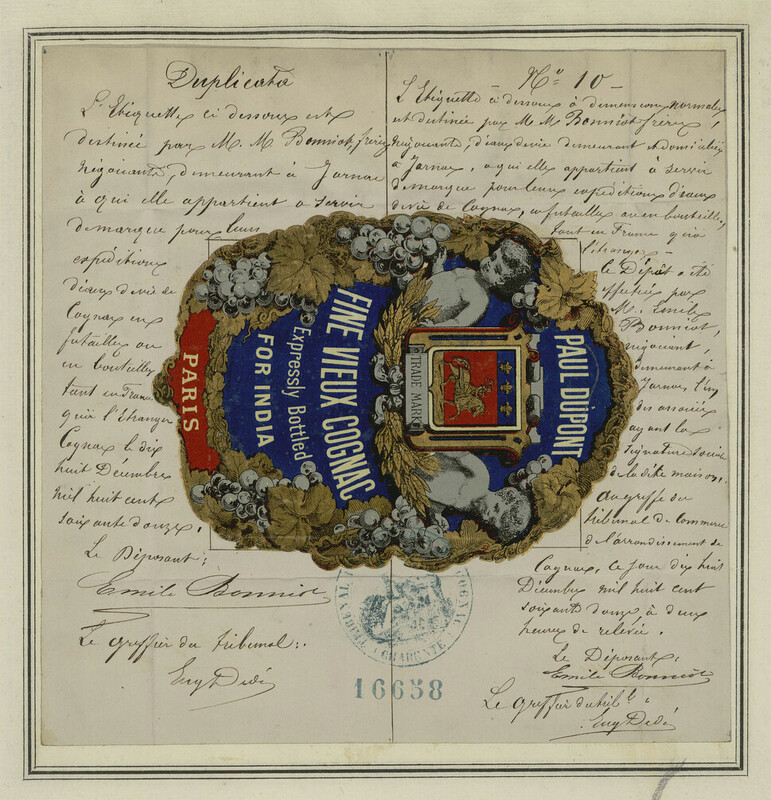 Duplicata
L'Etiquette ci dessous est
destinée par M. M. Bonniot frères
négociants, demeurant à Jarnac
à qui elle appartient a servir
de marque pour leurs
expéditions
d'eaux de vie de
Cognac en
futailles ou
en bouteilles
tant en France
qu'à l'Etranger
Cognac le dix
huit Décembre
mil huit cent
soixante douze.
Le Déposant:
Emile Bonniot
Le greffier du tribunal:
Eug Dedé
No 10
L'Etiquette ci dessous à dimensions normales
est destinée par M. M. Bonniot frères,
négociants, d'eaux de vie demeurant & domiciliés
à Jarnac, à qui elle appartient à servir
de marque pour leurs expéditions d'eaux
de vie de Cognac, en futailles ou en bouteilles,
tant en France qu'à
l'étranger
Le Dépôt a été
effectué par
M. Emile
Bonniot,
négociant,
demeurant à
Jarnac, l'un
des associés
ayant la
signature sociale
de la dite maison.
Au greffe du
tribunal de Commerce
de l'arrondissement de
Cognac, le jour dix huit
Décembre mil huit cent
soixante douze, à deux
heures de relevée.
Le Déposant:
Emile Bonniot
Le greffier du tribl:
Eug Dedé
PAUL DUPONT
TRADE MARK
FINE VIEUX COGNAC
Expressly Bottled
FOR INDIA
PARIS
CHARENTE
16658